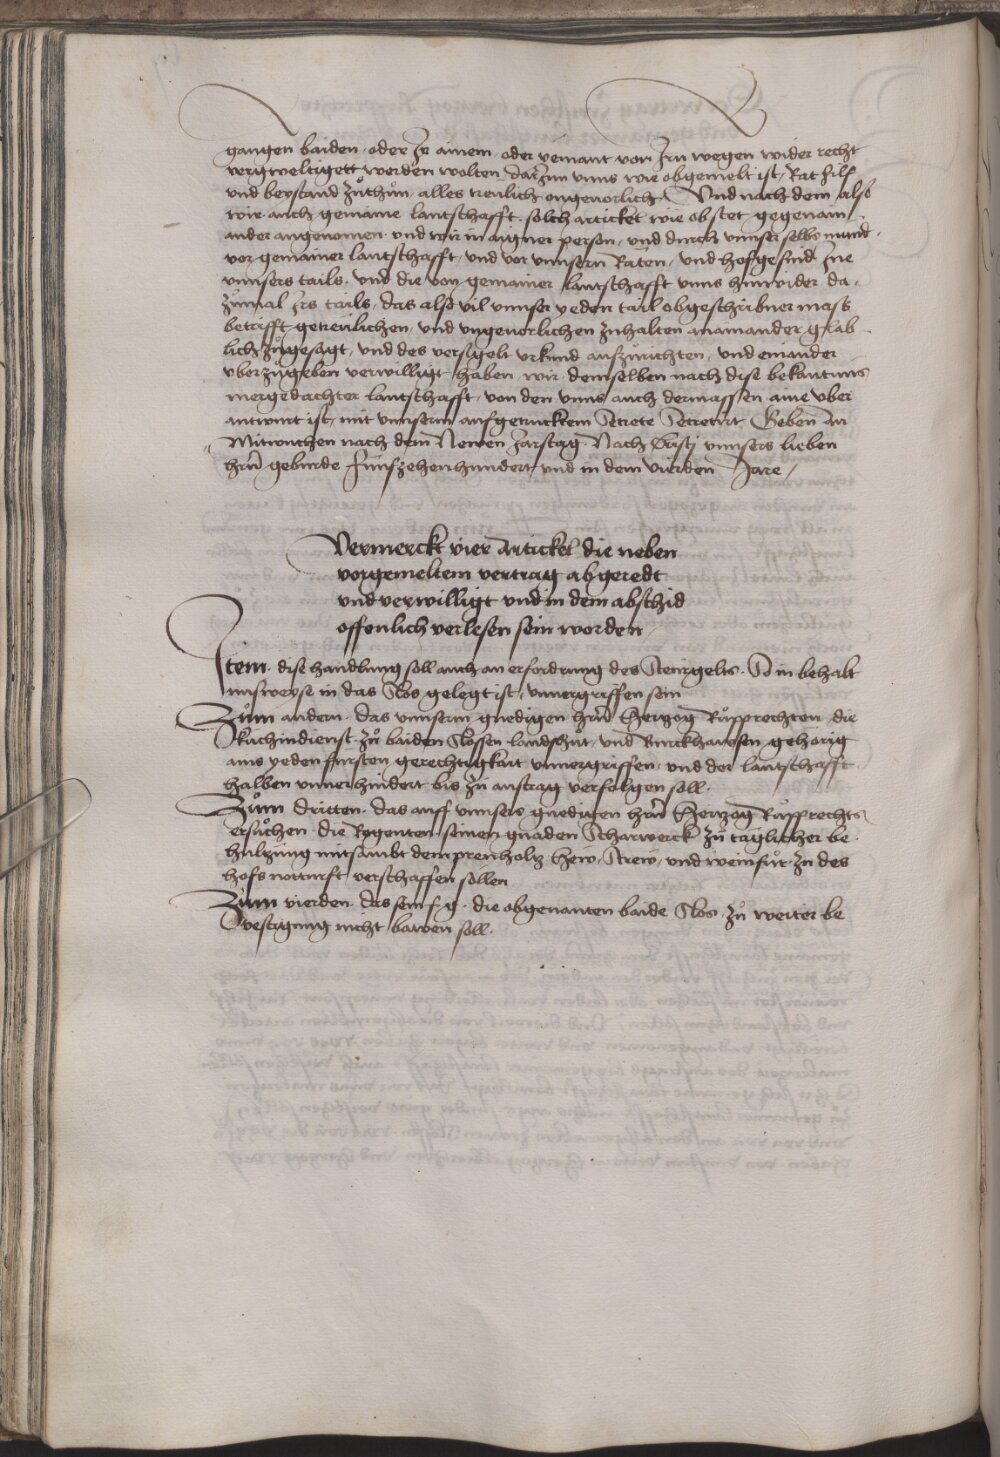 gangen baiden oder Ir ainem oder yemant von Irn wegen wider recht
vergweltigett werden wolten, darInn unns wie obgemelt ist, Rat hilf
und beystand zuthun alles treulich ongeverlich. Und nach dem also
wir auch gemaine lantschafft solch artickel wie obstet gegenain
ander angenomen und wir in aigner person, und durch unnser selbs mund
vor gemainer lantschafft, und vor unnsern Raten, und hofgesind Ine
unnsers tails, und die von gemainer lantschafft unns hinwider da
zumal Irs tails, das also vil unnser yeden tail obgeschribner mass
betrifft getreulichen, und ungeverlichen zuhalten anainander glab
lich zugesagt, und des versigelt urkund aufzurichten, und einander
uberzugeben verwilligt haben, wir demselben nach dise bekantnus
mergedachter lantschafft, von den unns auch dermassen aine uber
antwurt ist, mit unnserm aufgetrucktem Secrete Secretirt, Geben An
Mitwochen nach dem Newen Jarstag Nach Cristi unnsers lieben
hern geburde Funfzehenhundert und in dem vierden Jare,
Vermerckt vier Artickel die neben
vorgemeltem vertrag abgeredt
und verwilligt und in dem abschid
offenlich verlesen sein worden,
Item dise handlung soll auch an erfordrung des Steurgelts So in behalt
nusweyse in das Slos gelegt ist, unvergriffen sein
Zum andern das unnserm gnedigen hern Hertzog Rupprechten die
Kuchindienst zu baiden Slossen landshut, und Burckhawsen gehorig
ains yeden fursten gerechtigkait unvergriffen, und der lantschafft
halben unverhindert bis zu austrag verfolgen soll.
Zum Dritten das auff unnsers gnedigen hern Hertzog Rupprechts
ersuchen die Regenten seinen gnaden Scharwerck zu taglicher be
hultzung mitsambt dem prenholtz Hew, Strew, und weinfur zu des
hofs notturft verschaffen sollen
Zum vierden das sein f. g. die obgenanten baide Slos zu weiter be
vestigung nicht bawen soll.